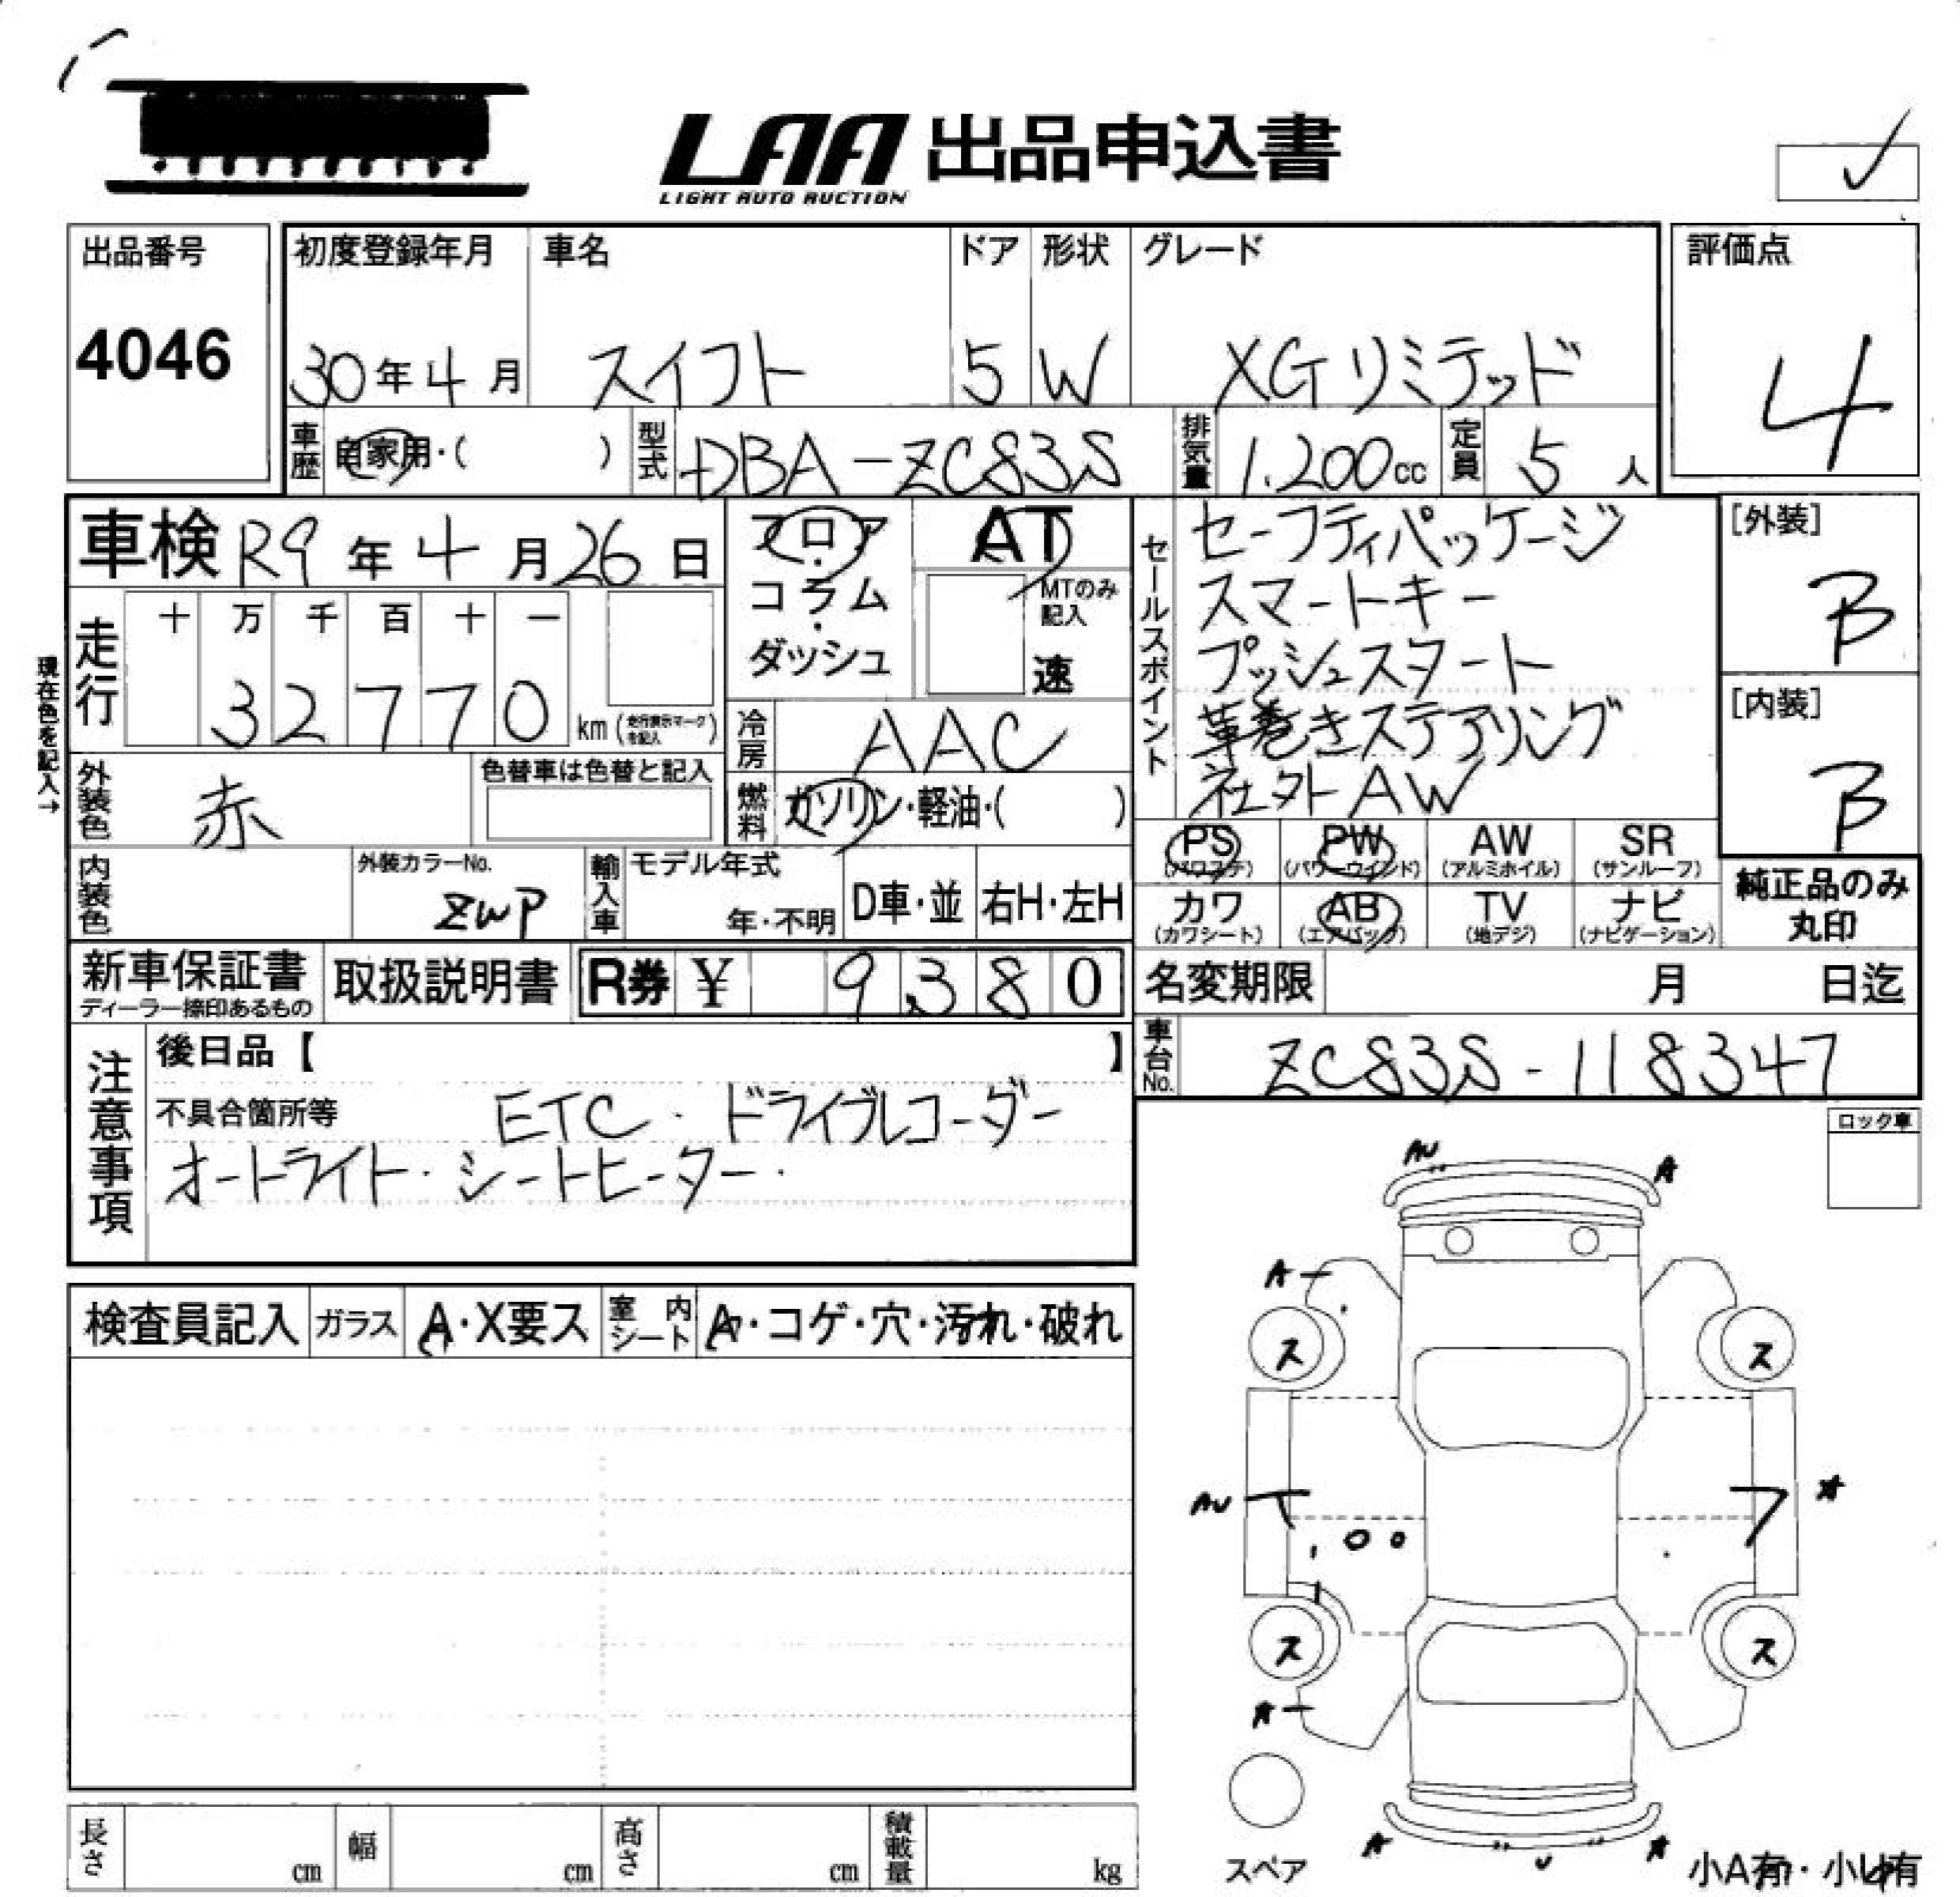 LAA 出品申込書
LIGHT AUTO AUCTION
出品番号
4046
初度登録年月 車名 ドア 形状 グレード
30年4月 スイフト 5 W XGリミテッド
評価点
4
車歴 自家用・( ) 型式 DBA-ZC83S 排気量 1.200cc 定員 5人
車検 R9年4月26日
フロア・コラム・ダッシュ
AT
MTのみ記入
速
セールスポイント
セーフティパッケージ
スマートキー
プッシュスタート
革巻きステアリング
社外AW
[外装]
B
[内装]
B
現在色を記入→
走行 十 万 千 百 十 一
32770 km (走行表示マークを記入)
冷房 AAC
燃料 ガソリン・軽油・( )
外装色 赤
色替車は色替と記入
内装色
外装カラーNo.
ZWP
輸入車 モデル年式
年・不明
D車・並 右H・左H
PS (パワステ) PW (パワーウインド) AW (アルミホイル) SR (サンルーフ)
カワ (カワシート) AB (エアバッグ) TV (地デジ) ナビ (ナビゲーション)
純正品のみ
丸印
新車保証書
ディーラー捺印あるもの
取扱説明書
R券 ¥ 9,380
名変期限 月 日迄
車台No. ZC83S-118347
注意事項
後日品【 】
不具合箇所等 ETC・ドライブレコーダー
オートライト・シートヒーター・
ロック車
検査員記入 ガラス A・X要ス 室内シート A・コゲ・穴・汚れ・破れ
AU A
A
ス ス
AU A
ス ス
A
A U A
スペア
小A有・小U有
長さ cm 幅 cm 高さ cm 積載量 kg